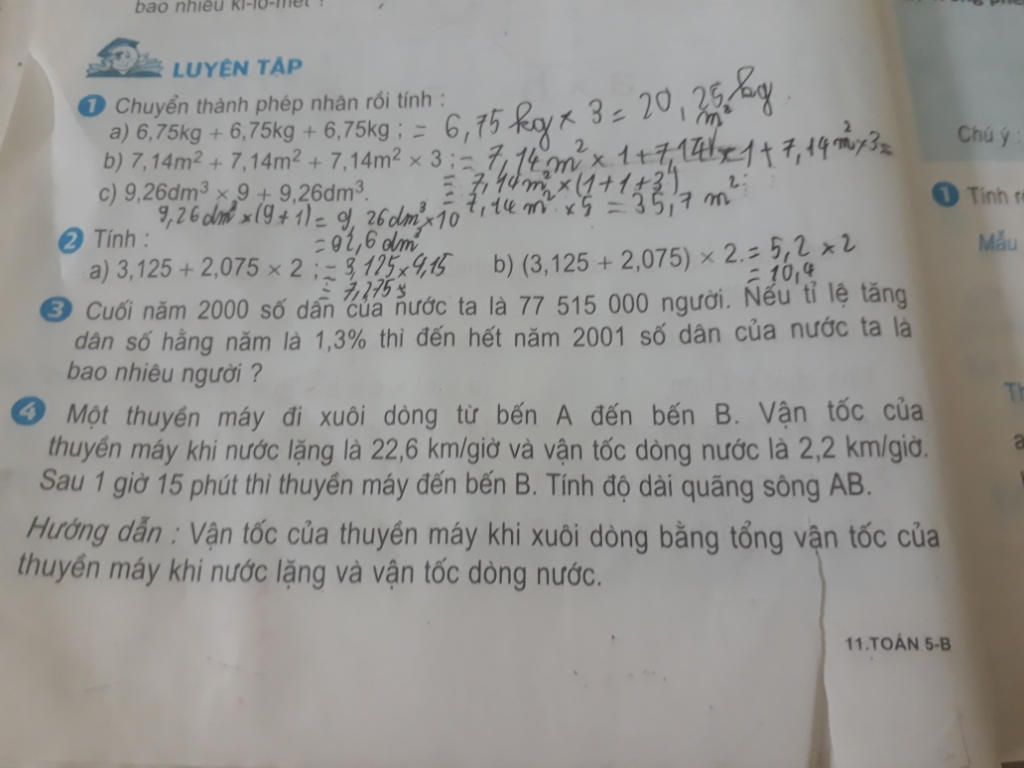 bao nhiêu ki-lô-mét ?
LUYỆN TẬP
1 Chuyển thành phép nhân rồi tính :
a) 6,75kg + 6,75kg + 6,75kg ; = 6,75 kg × 3 = 20,25 kg
b) 7,14m² + 7,14m² + 7,14m² × 3 ; = 7,14 m² × 1 + 7,14 m² × 1 + 7,14 m² × 3 =
= 7,14 m² × (1+1+3)
c) 9,26dm³ × 9 + 9,26dm³. = 7,14 m² × 5 = 35,7 m²
9,26 dm³ × (9+1) = 9,26 dm³ × 10
= 92,6 dm³
2 Tính :
a) 3,125 + 2,075 × 2 ; = 3,125 × 4,15
= 7,275
b) (3,125 + 2,075) × 2. = 5,2 × 2
= 10,4
3 Cuối năm 2000 số dân của nước ta là 77 515 000 người. Nếu tỉ lệ tăng
dân số hằng năm là 1,3% thì đến hết năm 2001 số dân của nước ta là
bao nhiêu người ?
4 Một thuyền máy đi xuôi dòng từ bến A đến bến B. Vận tốc của
thuyền máy khi nước lặng là 22,6 km/giờ và vận tốc dòng nước là 2,2 km/giờ.
Sau 1 giờ 15 phút thì thuyền máy đến bến B. Tính độ dài quãng sông AB.
Hướng dẫn : Vận tốc của thuyền máy khi xuôi dòng bằng tổng vận tốc của
thuyền máy khi nước lặng và vận tốc dòng nước.
11.TOÁN 5-B
Chú ý :
1 Tính
Mẫu